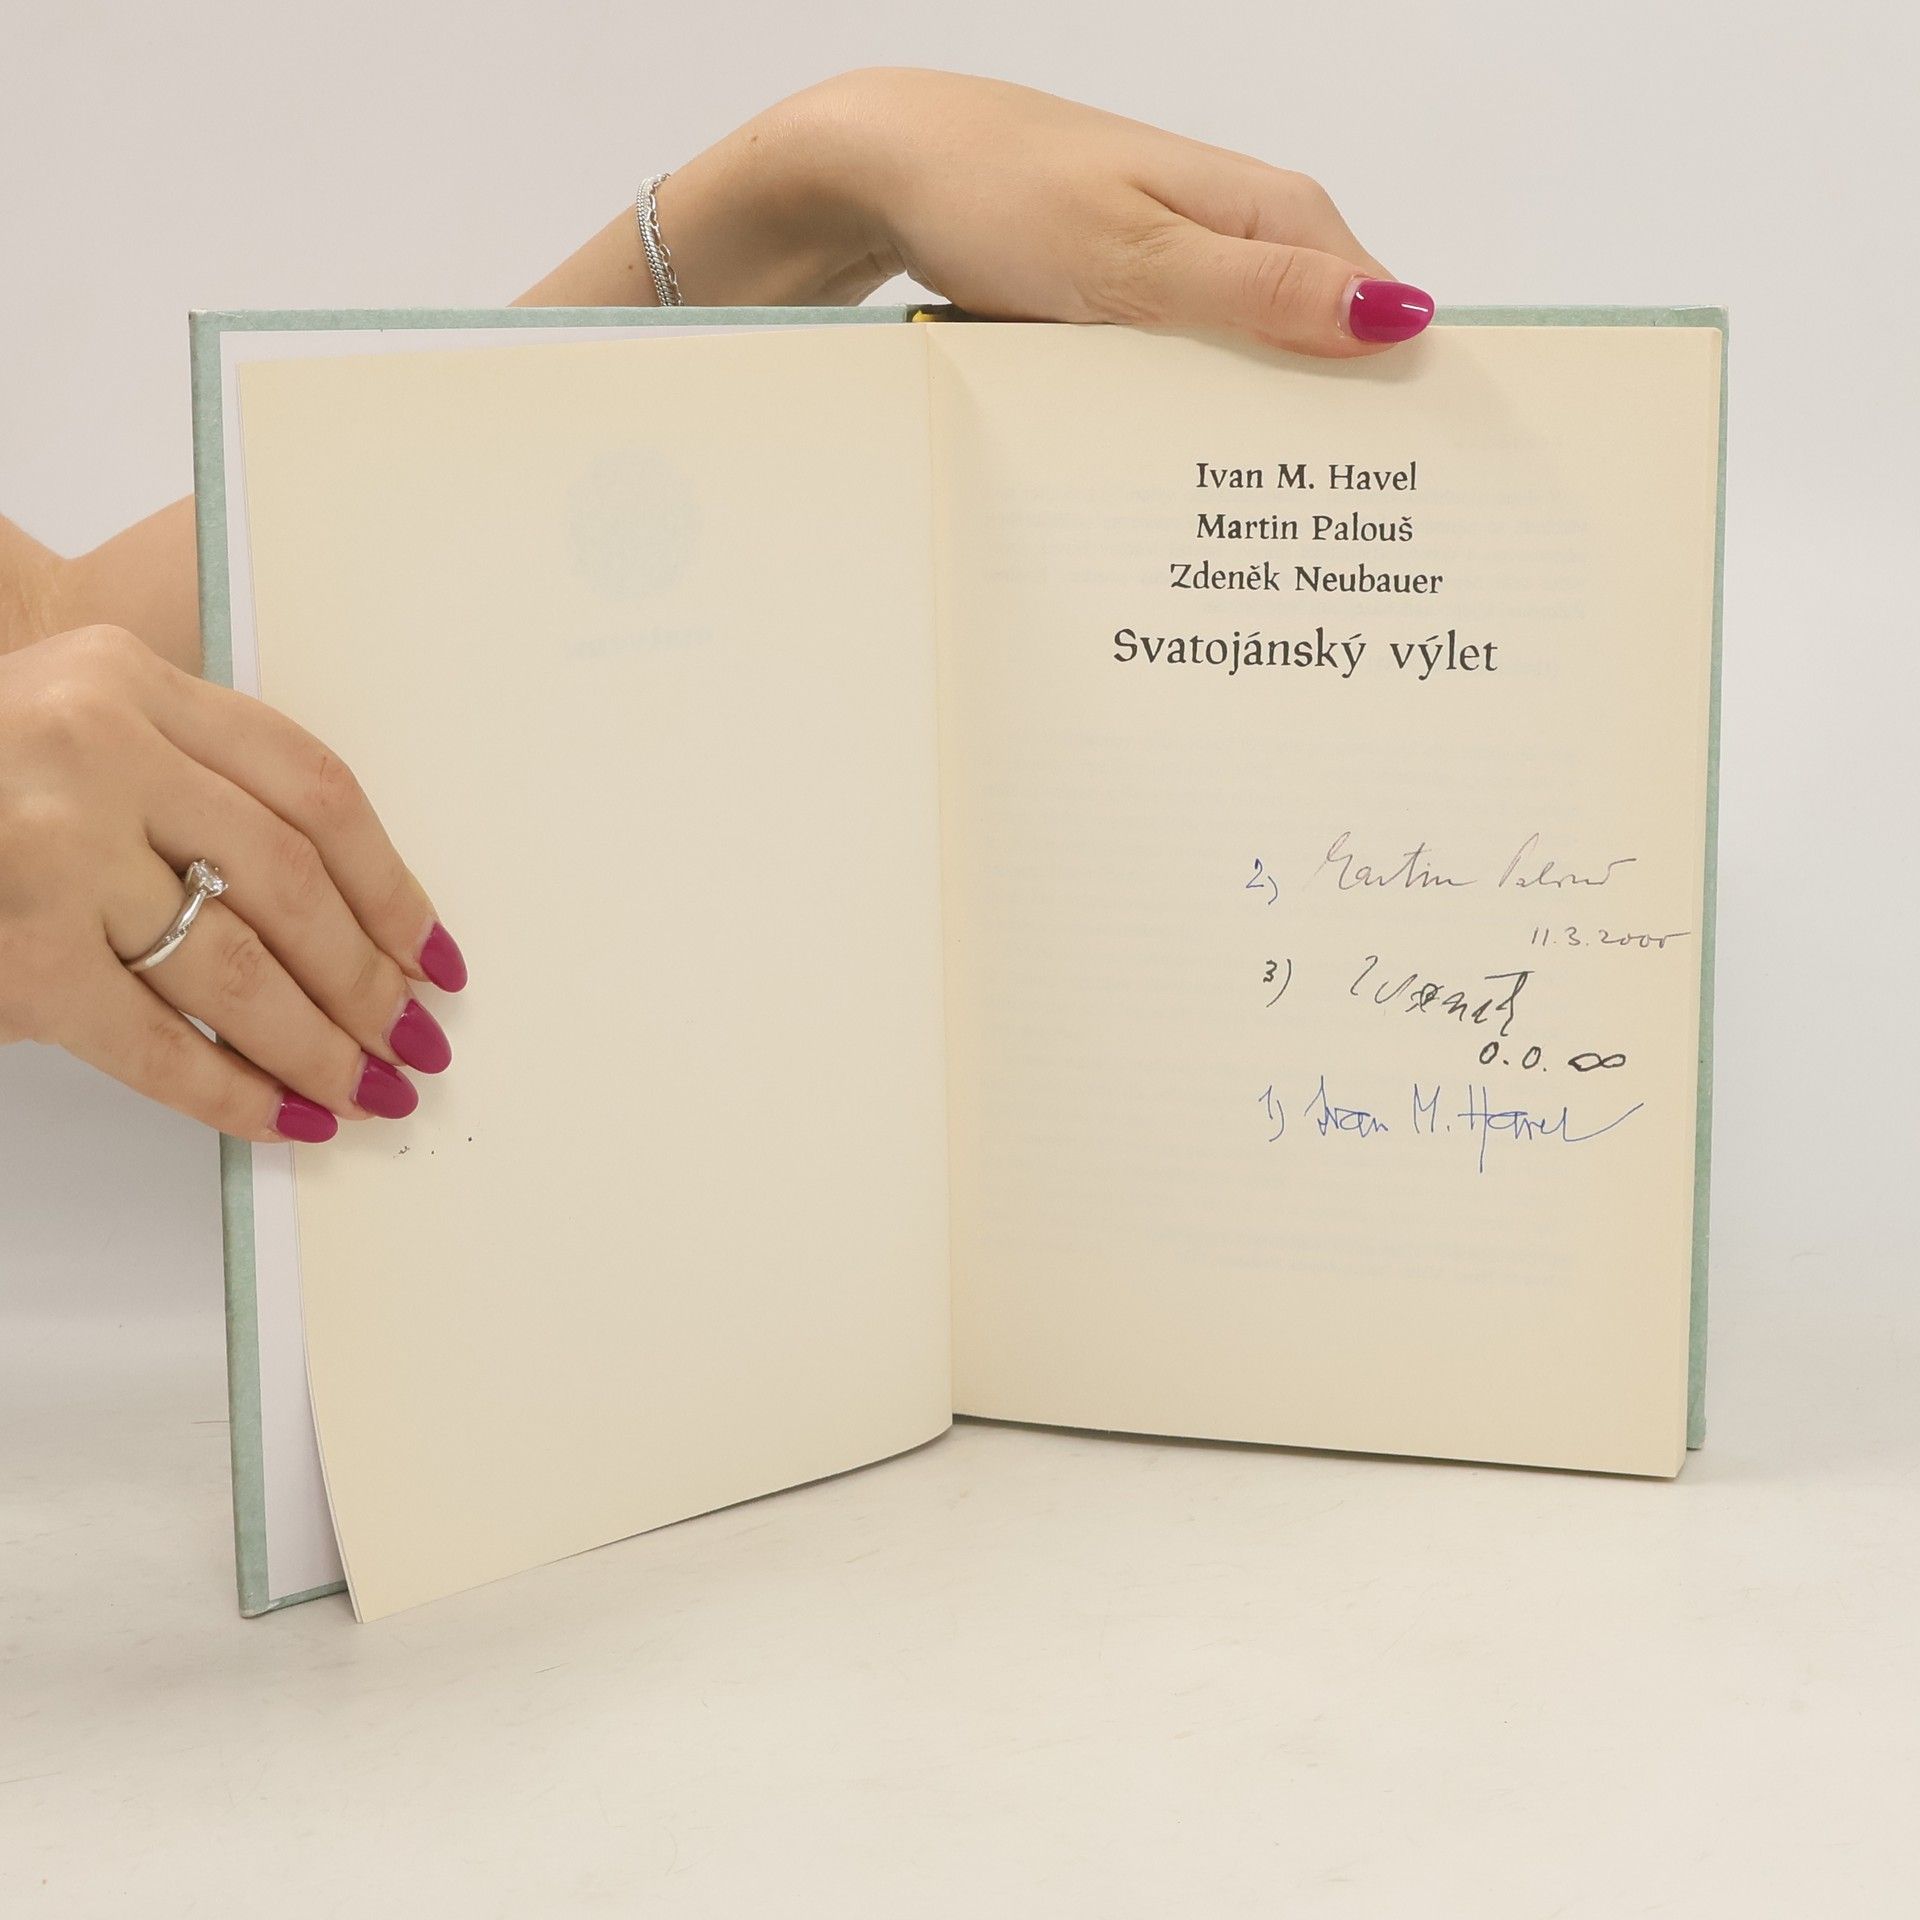 Ivan M. Havel
Martin Palouš
Zdeněk Neubauer
Svatojánský výlet
2) Martin Palouš
11.3.2000
3)
0.0.∞
1) Ivan M. Havel